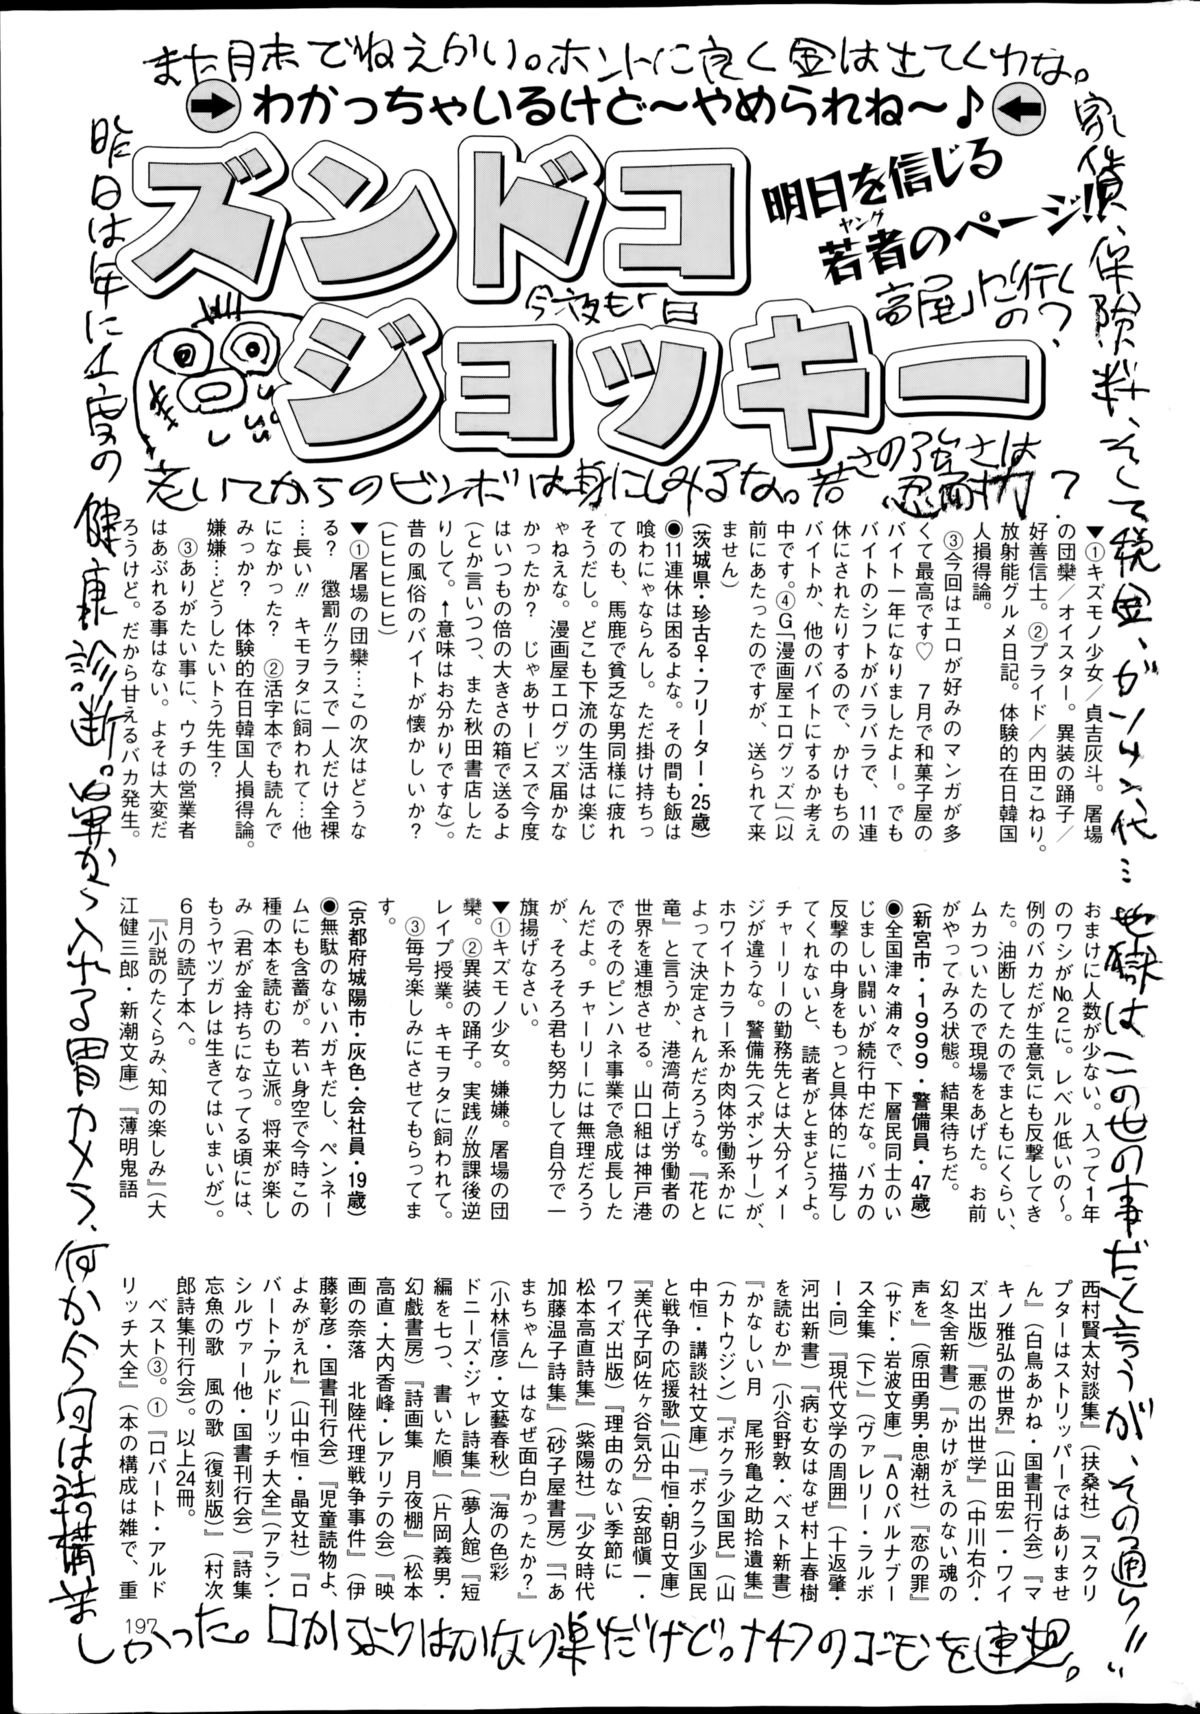 また月末でねえかい。ホントに良く金は出てくわな。
わかっちゃいるけど〜やめられね〜♪
ズンドコ
ジョッキー
明日を信じる
若者のページ!!
ヤング
高尾山に行くの?
今夜も
老いてからのビンボは身にしみるな。若さの強さは忍耐力?
家賃、保険料、そして税金、ガソリン代…地獄はこの世の事だと言うが、その通り!!
昨日は年に1度の健康診断。鼻から入する胃カメラ、何か今回は結構
しゃくった。口からよりはかなり楽だけど。ナチのゴーモンを連想。
▼①キズモノ少女/貞吉灰斗。屠場
の団欒/オイスター。異装の踊子/
好善信士。②プライド/内田こねり。
放射能グルメ日記。体験的在日韓国
人損得論。
③今回はエロが好みのマンガが多
くて最高です♡ 7月で和菓子屋の
バイト一年になりましたよー。でも
バイトのシフトがバラバラで、11連
休にされたりするので、かけもちの
バイトか、他のバイトにするか考え
中です。④G「漫画屋エログッズ」(以
前にあたったのですが、送られて来
ません)
(茨城県・珍古♀・フリーター・25歳)
●11連休は困るよな。その間も飯は
喰わにゃならんし。ただ掛け持ちっ
てのも、馬鹿で貧乏な男同様に疲れ
そうだし。どこも下流の生活は楽じ
ゃねえな。漫画屋エログッズ届かな
かったか? じゃあサービスで今度
はいつもの倍の大きさの箱で送るよ
(とか言いつつ、また秋田書店した
りして。↑意味はお分かりですな)。
昔の風俗のバイトが懐かしいか?
(ヒヒヒヒヒ)
▼①屠場の団欒…この次はどうな
る? 懲罰!!クラスで一人だけ全裸
…長い!! キモヲタに飼われて…他
になかった? ②活字本でも読んで
みっか? 体験的在日韓国人損得論。
嫌嫌…どうしたいトう先生?
③ありがたい事に、ウチの営業者
はあぶれる事はない。よそは大変だ
ろうけど。だから甘えるバカ発生。
おまけに人数が少ない。入って1年
のワシがNo.2に。レベル低いの〜。
例のバカだが生意気にも反撃してき
た。油断してたのでまともにくらい、
ムカついたので現場をあげた。お前
がやってみろ状態。結果待ちだ。
(新宮市・1999・警備員・47歳)
●全国津々浦々で、下層民同士のい
じましい闘いが続行中だな。バカの
反撃の中身をもっと具体的に描写し
てくれないと、読者がとまどうよ。
チャーリーの勤務先とは大分イメー
ジが違うな。警備先(スポンサー)が、
ホワイトカラー系か肉体労働系かに
よって決定されんだろうな。『花と
竜』と言うか、港湾荷上げ労働者の
世界を連想させる。山口組は神戸港
でのそのピンハネ事業で急成長した
んだよ。チャーリーには無理だろう
が、そろそろ君も努力して自分で一
旗揚げなさい。
▼①キズモノ少女。嫌嫌。屠場の団
欒。②異装の踊子。実践!!放課後逆
レイプ授業。キモヲタに飼われて。
③毎号楽しみにさせてもらってま
す。
(京都府城陽市・灰色・会社員・19歳)
●無駄のないハガキだし、ペンネー
ムにも含蓄が。若い身空で今時この
種の本を読むのも立派。将来が楽し
み(君が金持ちになってる頃には、
もうヤツガレは生きてはいまいが)。
6月の読了本へ。
『小説のたくらみ、知の楽しみ』(大
江健三郎・新潮文庫)『薄明鬼語
西村賢太対談集』(扶桑社)『スクリ
プターはストリッパーではありませ
ん』(白鳥あかね・国書刊行会)『マ
キノ雅弘の世界』(山田宏一・ワイ
ズ出版)『悪の出世学』(中川右介・
幻冬舎新書)『かけがえのない魂の
声を』(原田勇男・思潮社)『恋の罪』
(サド・岩波文庫)『AOバルナブー
ス全集(下)』(ヴァレリー・ラルボ
ー・同)『現代文学の周囲』(十返肇・
河出新書)『病む女はなぜ村上春樹
を読むか』(小谷野敦・ベスト新書)
『かなしい月 尾形亀之助拾遺集』
(カトウジン)『ボクラ少国民』(山
中恒・講談社文庫)『ボクラ少国民
と戦争の応援歌』(山中恒・朝日文庫)
『美代子阿佐ヶ谷気分』(安部愼一・
ワイズ出版)『理由のない季節に
松本高直詩集』(紫陽社)『少女時代
加藤温子詩集』(砂子屋書房)『「あ
まちゃん」はなぜ面白かったか?』
(小林信彦・文藝春秋)『海の色彩
ドニーズ・ジャレ詩集』(夢人館)『短
編を七つ、書いた順』(片岡義男・
幻戯書房)『詩画集 月夜棚』(松本
高直・大内香峰・レアリテの会)『映
画の奈落 北陸代理戦争事件』(伊
藤彰彦・国書刊行会)『児童読物よ、
よみがえれ』(山中恒・晶文社)『ロ
バート・アルドリッチ大全』(アラン・
シルヴァー他・国書刊行会)『詩集
忘魚の歌 風の歌(復刻版)』(村次
郎詩集刊行会)。以上24冊。
ベスト③。①『ロバート・アルド
リッチ大全』(本の構成は雑で、重
197